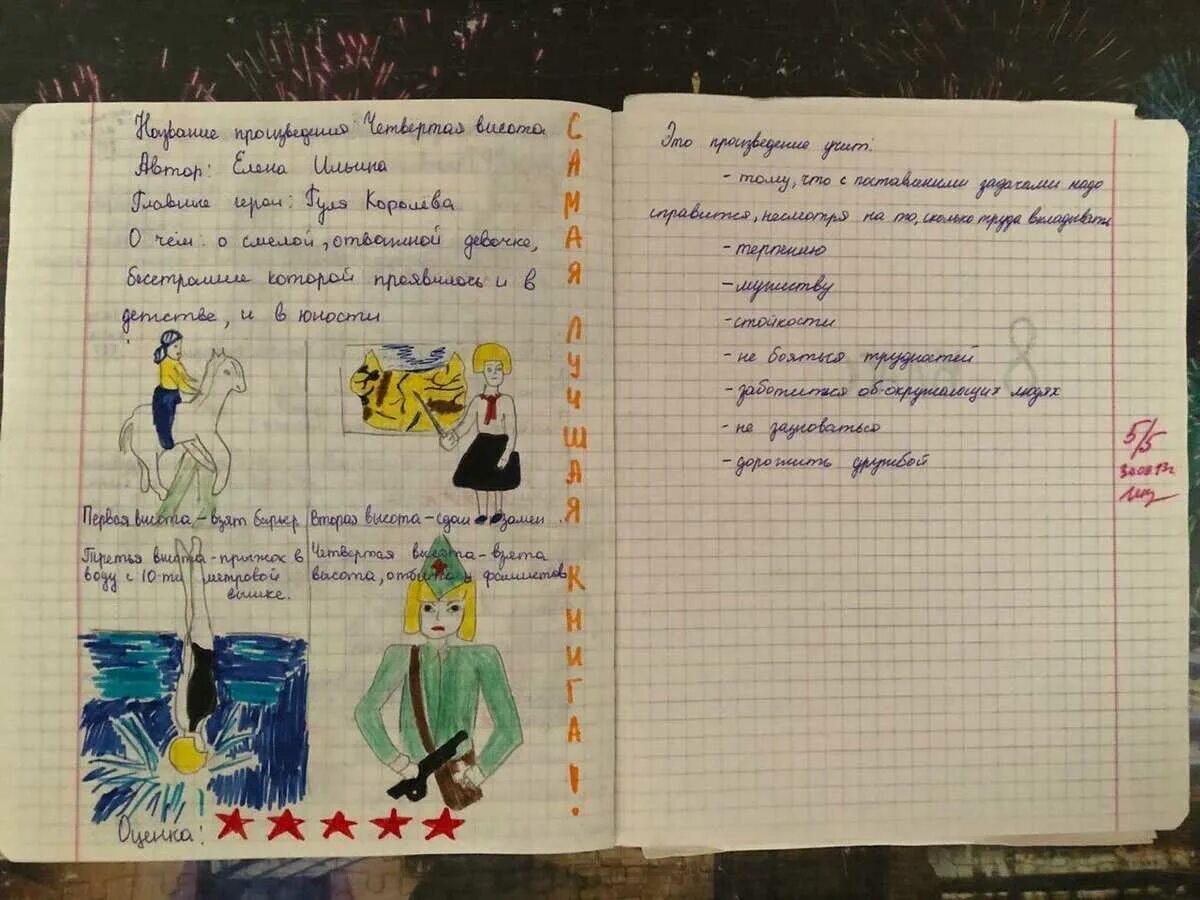 Название произведения: Четвертая высота
Автор: Елена Ильина
Главные герои: Гуля Королёва
О чём: о смелой, отважной девочке,
бесстрашие которой проявилось и в
детстве, и в юности
Первая высота - взят барьер
Вторая высота - сдан экзамен
Третья высота - прыжок в
воду с 10-ти метровой
вышке.
Четвертая высота - взята
высота, отбита у фашистов
Оценка:
САМАЯ ЛУЧШАЯ КНИГА!
Это произведение учит:
- тому, что с поставленими задачами надо
справится, несмотря на то, сколько труда вкладывать
- терпению
- мужеству
- стойкости
- не бояться трудностей
- заботиться об окружающих людях
- не зазноваться
- дорожить дружбой
5/5